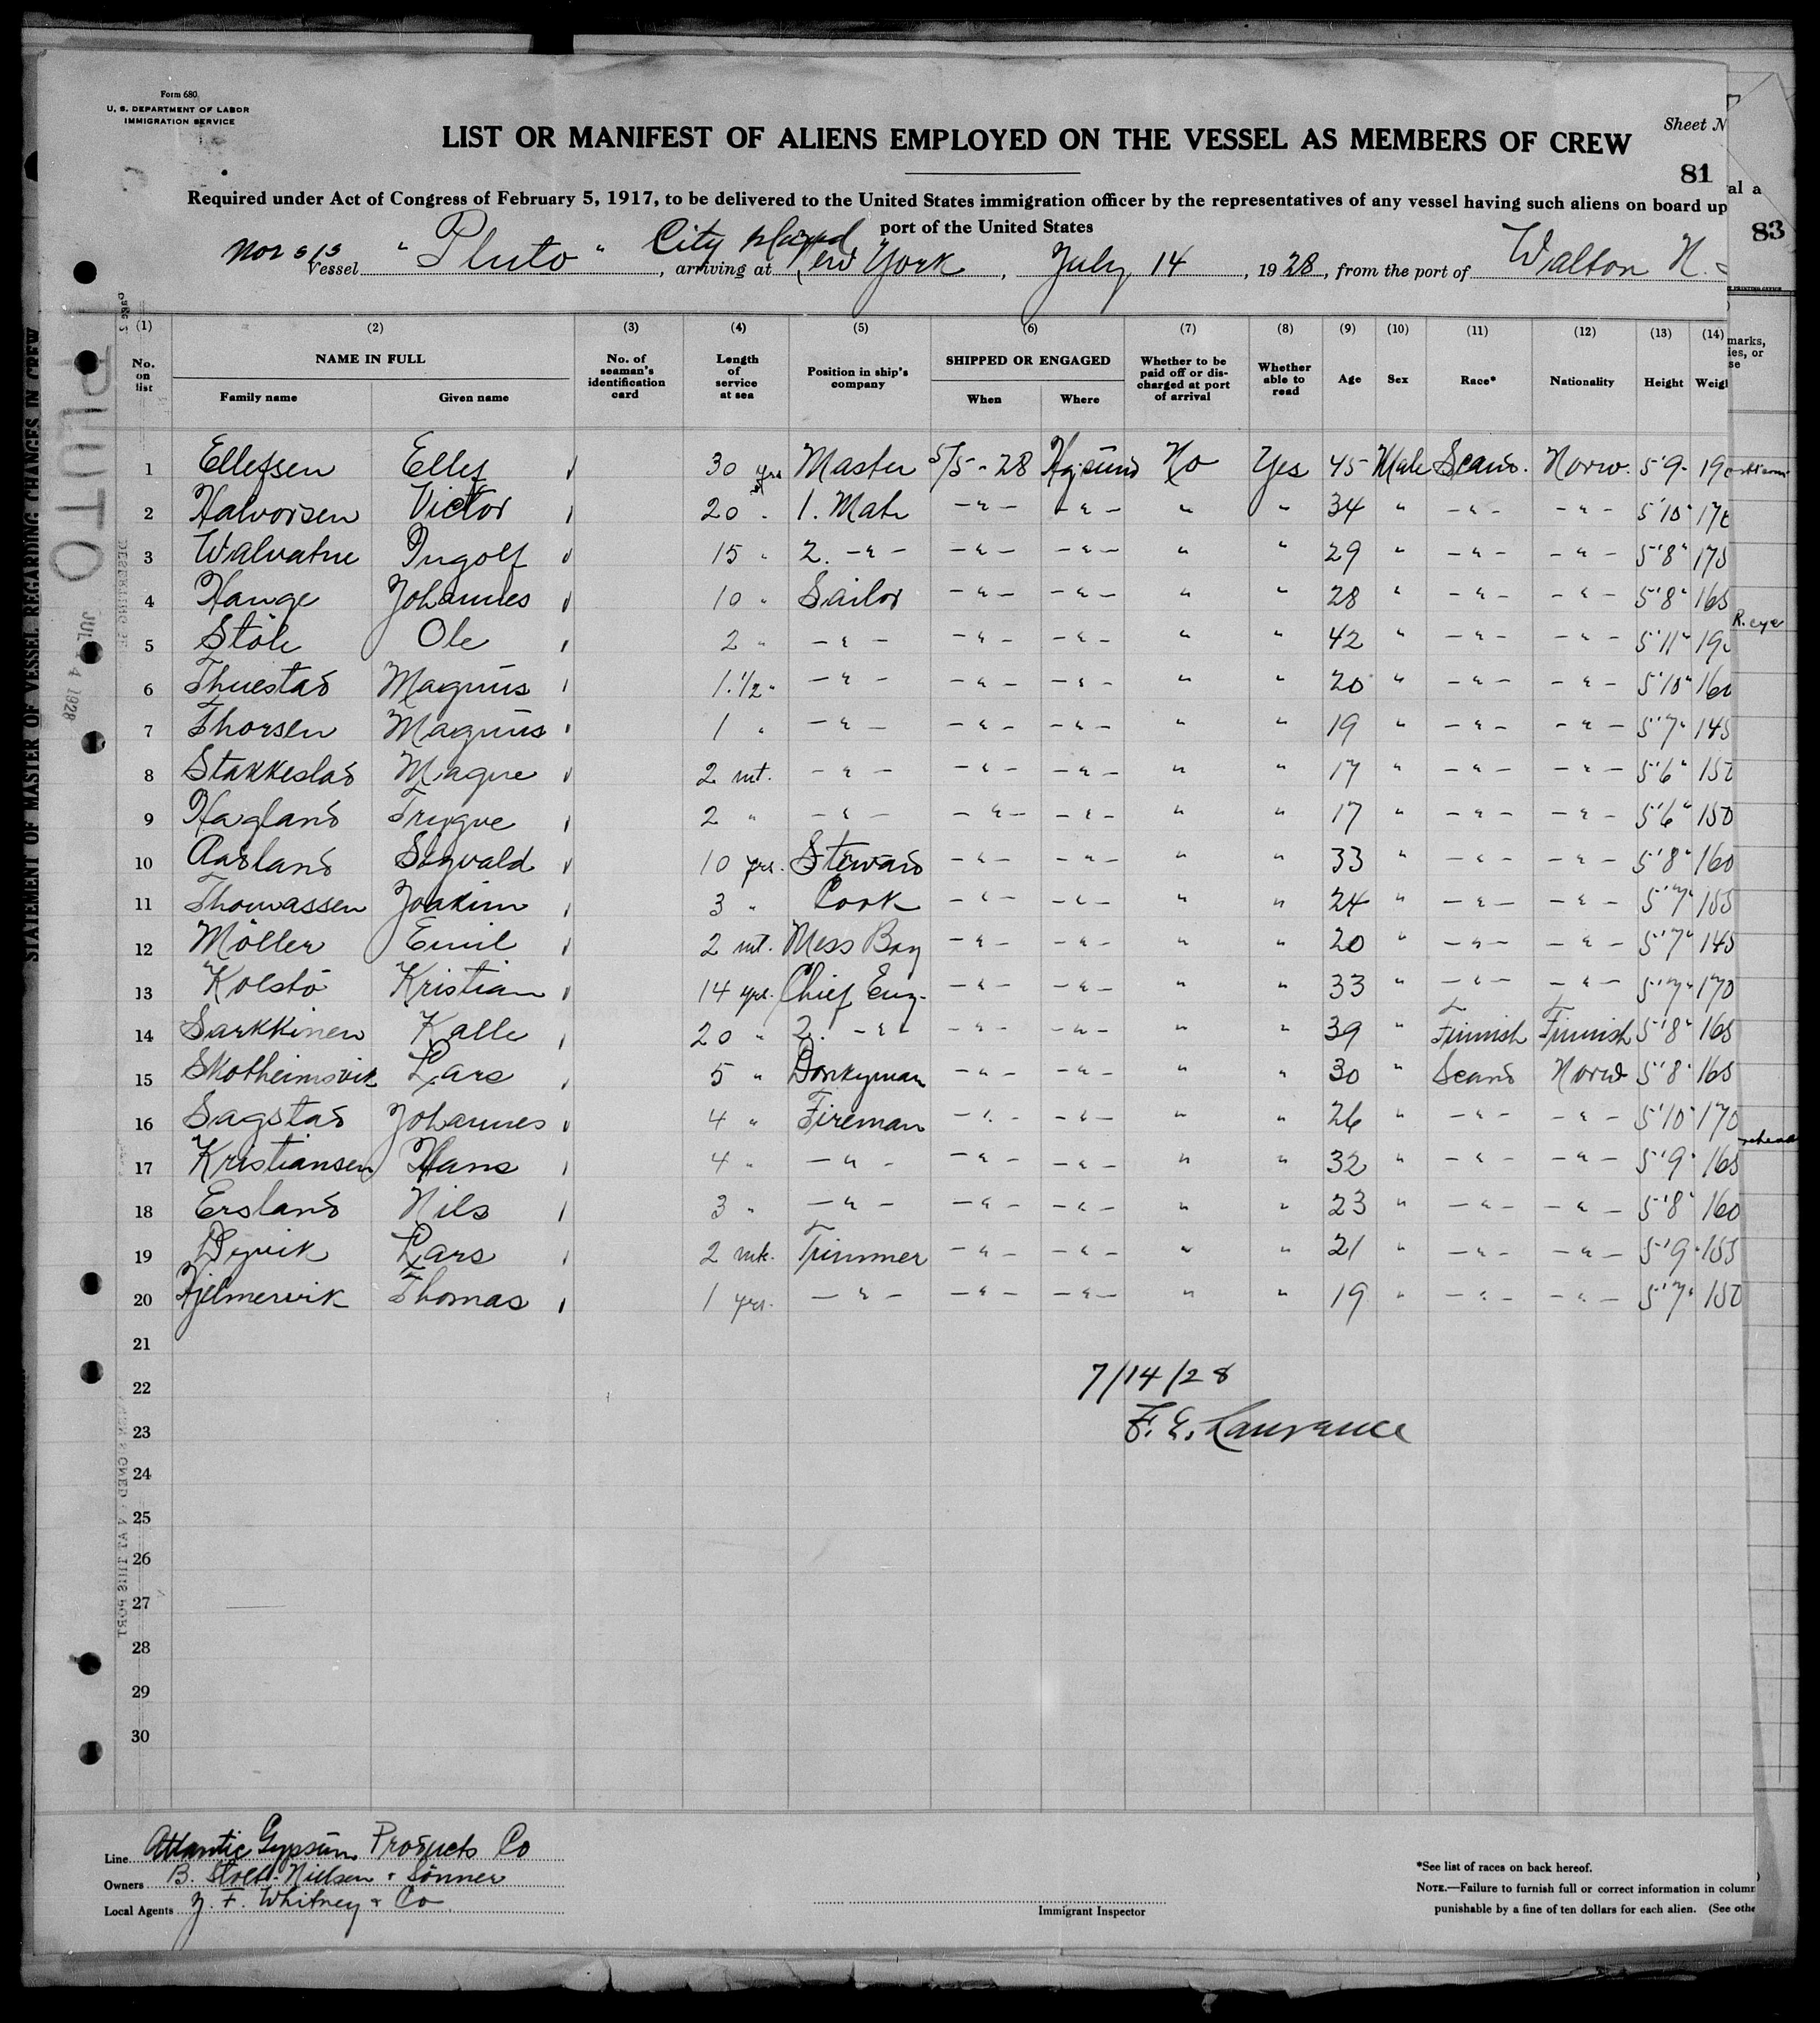 Form 680
U. S. DEPARTMENT OF LABOR
IMMIGRATION SERVICE
Sheet N
LIST OR MANIFEST OF ALIENS EMPLOYED ON THE VESSEL AS MEMBERS OF CREW
81
Required under Act of Congress of February 5, 1917, to be delivered to the United States immigration officer by the representatives of any vessel having such aliens on board up
port of the United States
al a
83
Nor s/s Vessel "Pluto", arriving at City Island New York, July 14, 1928, from the port of Walton N.
PLUTO
JUL 4 1928
STATEMENT OF MASTER OF VESSEL REGARDING CHANGES IN CREW
(1) (2) (3) (4) (5) (6) (7) (8) (9) (10) (11) (12) (13) (14)
No. on list NAME IN FULL No. of seaman's identification card Length of service at sea Position in ship's company SHIPPED OR ENGAGED Whether to be paid off or discharged at port of arrival Whether able to read Age Sex Race* Nationality Height Weigh
Family name Given name When Where
marks,
ies, or
se
1 Ellefsen Ellef 30 yrs Master 5/5-28 Hgsund No Yes 45 Male Scand. Norw. 5'9" 190
2 Halvorsen Victor 20 " 1. Mate -"- -"- " " 34 " -"- -"- 5'10" 170
3 Walvatne Ingolf 15 " 2. -"- -"- -"- " " 29 " -"- -"- 5'8" 175
4 Hauge Johannes 10 " Sailor -"- -"- " " 28 " -"- -"- 5'8" 165
R. eye
5 Stöle Ole 2 " -"- -"- -"- " " 42 " -"- -"- 5'11" 190
6 Thuestad Magnus 1.1/2 " -"- -"- -"- " " 20 " -"- -"- 5'10" 160
7 Thorsen Magnus 1 " -"- -"- -"- " " 19 " -"- -"- 5'7" 145
8 Stakkestad Magne 2 mt. -"- -"- -"- " " 17 " -"- -"- 5'6" 150
9 Hagland Trygve 2 " -"- -"- -"- " " 17 " -"- -"- 5'6" 150
10 Aasland Sigvald 10 yrs. Steward -"- -"- " " 33 " -"- -"- 5'8" 160
11 Thomassen Joakim 3 " Cook -"- -"- " " 24 " -"- -"- 5'7" 155
12 Möller Emil 2 mt. Mess Boy -"- -"- " " 20 " -"- -"- 5'7" 145
13 Kolstö Kristian 14 yrs. Chief Eng. -"- -"- " " 33 " -"- -"- 5'7" 170
14 Sarkkinen Kalle 20 " 2. -"- -"- -"- " " 39 " Finnish Finnish 5'8" 165
15 Skotheimsvik Lars 5 " Donkyman -"- -"- " " 30 " Scand Norw 5'8" 165
16 Sagstad Johannes 4 " Fireman -"- -"- " " 26 " -"- -"- 5'10" 170
17 Kristiansen Hans 4 " -"- -"- -"- " " 32 " -"- -"- 5'9" 165
18 Ersland Nils 3 " -"- -"- -"- " " 23 " -"- -"- 5'8" 160
19 Dyvik Lars 2 mt. Trimmer -"- -"- " " 21 " -"- -"- 5'9" 155
20 Hjelmervik Thomas 1 yrs. -"- -"- -"- " " 19 " -"- -"- 5'7" 150
21
22
7/14/28
23
F. E. Lawrance
24
25
26
27
28
29
30
Line Atlantic Gypsum Products Co
Owners B. Stolt-Nielsen & Sönner
Local Agents J. F. Whitney & Co
Immigrant Inspector
*See list of races on back hereof.
NOTE.—Failure to furnish full or correct information in column
punishable by a fine of ten dollars for each alien. (See othe